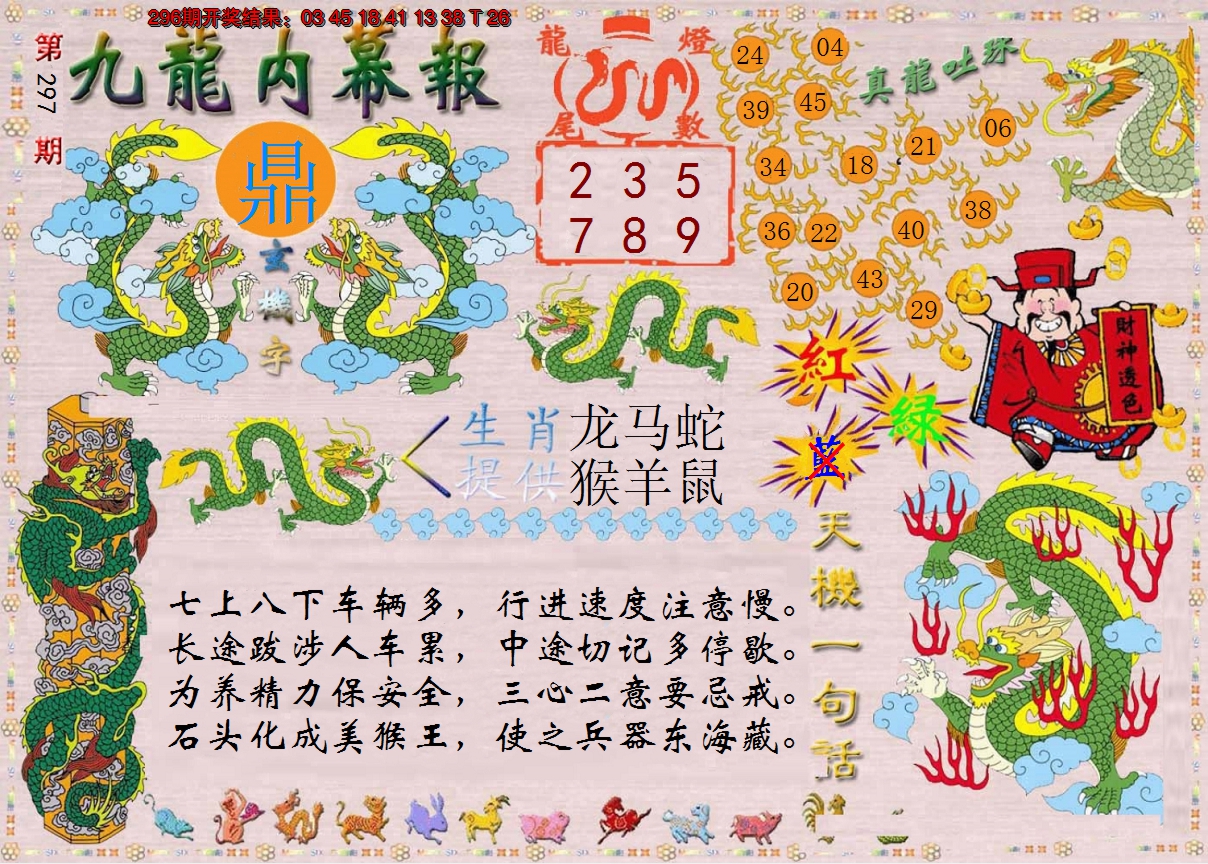 296期开奖结果：03 45 18 41 13 38 T 26
第297期
九龍内幕報
鼎
玄機字
龍燈
尾數
2 3 5
7 8 9
真龍吐珠
24
04
39
45
34
18
21
06
36
22
40
38
20
43
29
財神透色
紅
綠
藍
生肖提供
龙马蛇
猴羊鼠
天機一句話
七上八下车辆多，行进速度注意慢。
长途跋涉人车累，中途切记多停歇。
为养精力保安全，三心二意要忌戒。
石头化成美猴王，使之兵器东海藏。